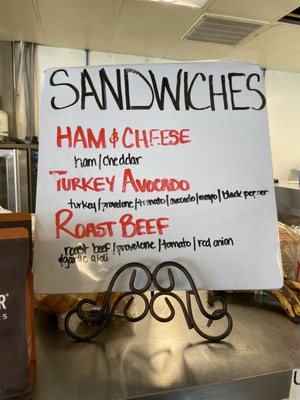 SANDWICHES
HAM & CHEESE
ham/cheddar
TURKEY AVOCADO
turkey/provolone/tomato/avocado/mayo/black pepper
ROAST BEEF
roast beef/provolone/tomato/red onion
garlic aioli